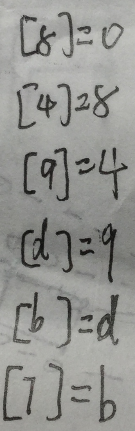 [8]=0
[4]=8
[9]=4
[d]=9
[b]=d
[7]=b